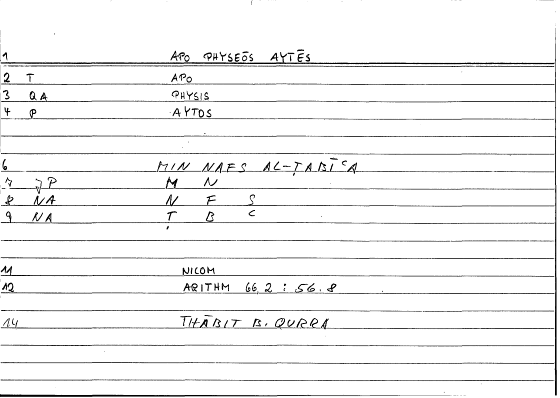 1 APO PHYSEŌS AYTĒS
2 T APO
3 QA PHYSIS
4 P AYTOS
6 MIN NAFS AL-ṬABĪCA
7 JP M N
8 NA N F S
9 NA Ṭ B C
11 NICOM
12 ARITHM 66,2 : 56.8
14 THĀBIT B. QURRA